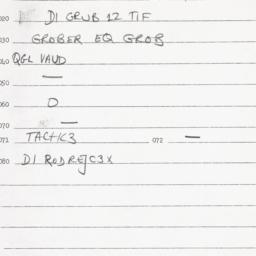 020 DI GRUB 12 TIF
030 GROBER EQ GROB
040 QGL VAUD
050 —
060 D
070 —
071 TACHK3 072 —
080 DI RODREJC3X